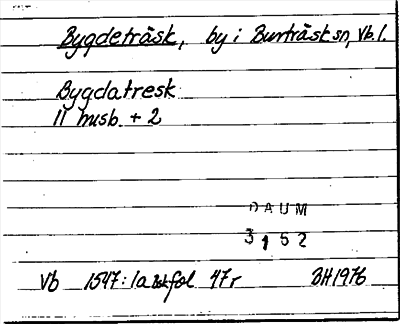 Bygdeträsk, by i Burträsk sn, Vb. l.
Bygdatresk
11 husb. + 2
DAUM
3152
Vb 1547:1 a fol 47r BH 1976